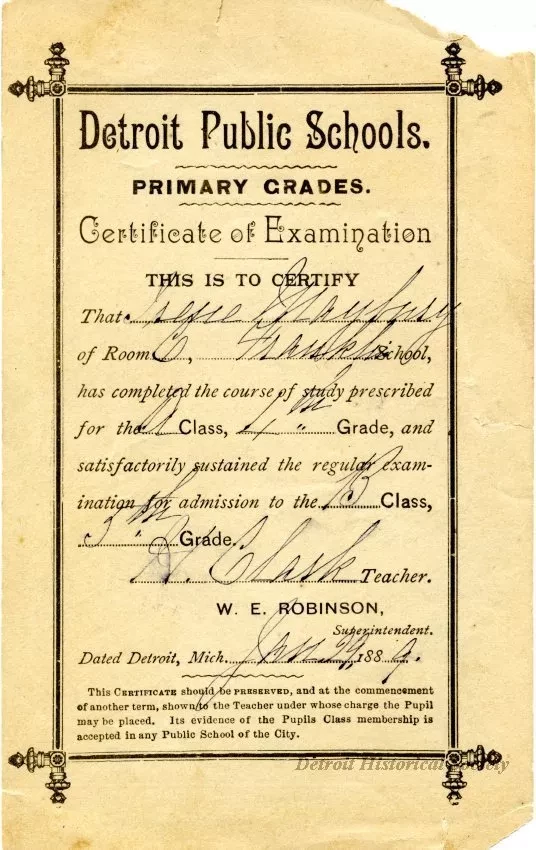 Detroit Public Schools.
PRIMARY GRADES.
Certificate of Examination
THIS IS TO CERTIFY
That Irene Maybury
of Room C, Franklin School,
has completed the course of study prescribed
for the A Class, 4th Grade, and
satisfactorily sustained the regular exam-
ination for admission to the B Class,
5th Grade.
H. Clark Teacher.
W. E. ROBINSON,
Superintendent.
Dated Detroit, Mich. Jan 29 1889.
This CERTIFICATE should be PRESERVED, and at the commencement
of another term, shown to the Teacher under whose charge the Pupil
may be placed. Its evidence of the Pupils Class membership is
accepted in any Public School of the City.
Detroit Historical Society